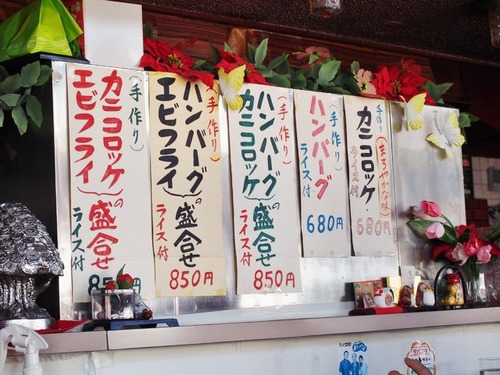 カニコロッケ
エビフライ
(手作り)
の盛合せ
ライス付
85
(手作り)
ハンバーグ
エビフライ
の盛合せ
ライス付
850円
(手作り)
ハンバーグ
カニコロッケ
の盛合せ
ライス付
850円
(手作り)
ハンバーグ
ライス付
680円
手作り
(まろやかな味)
カニコロッケ
ライス付
680円